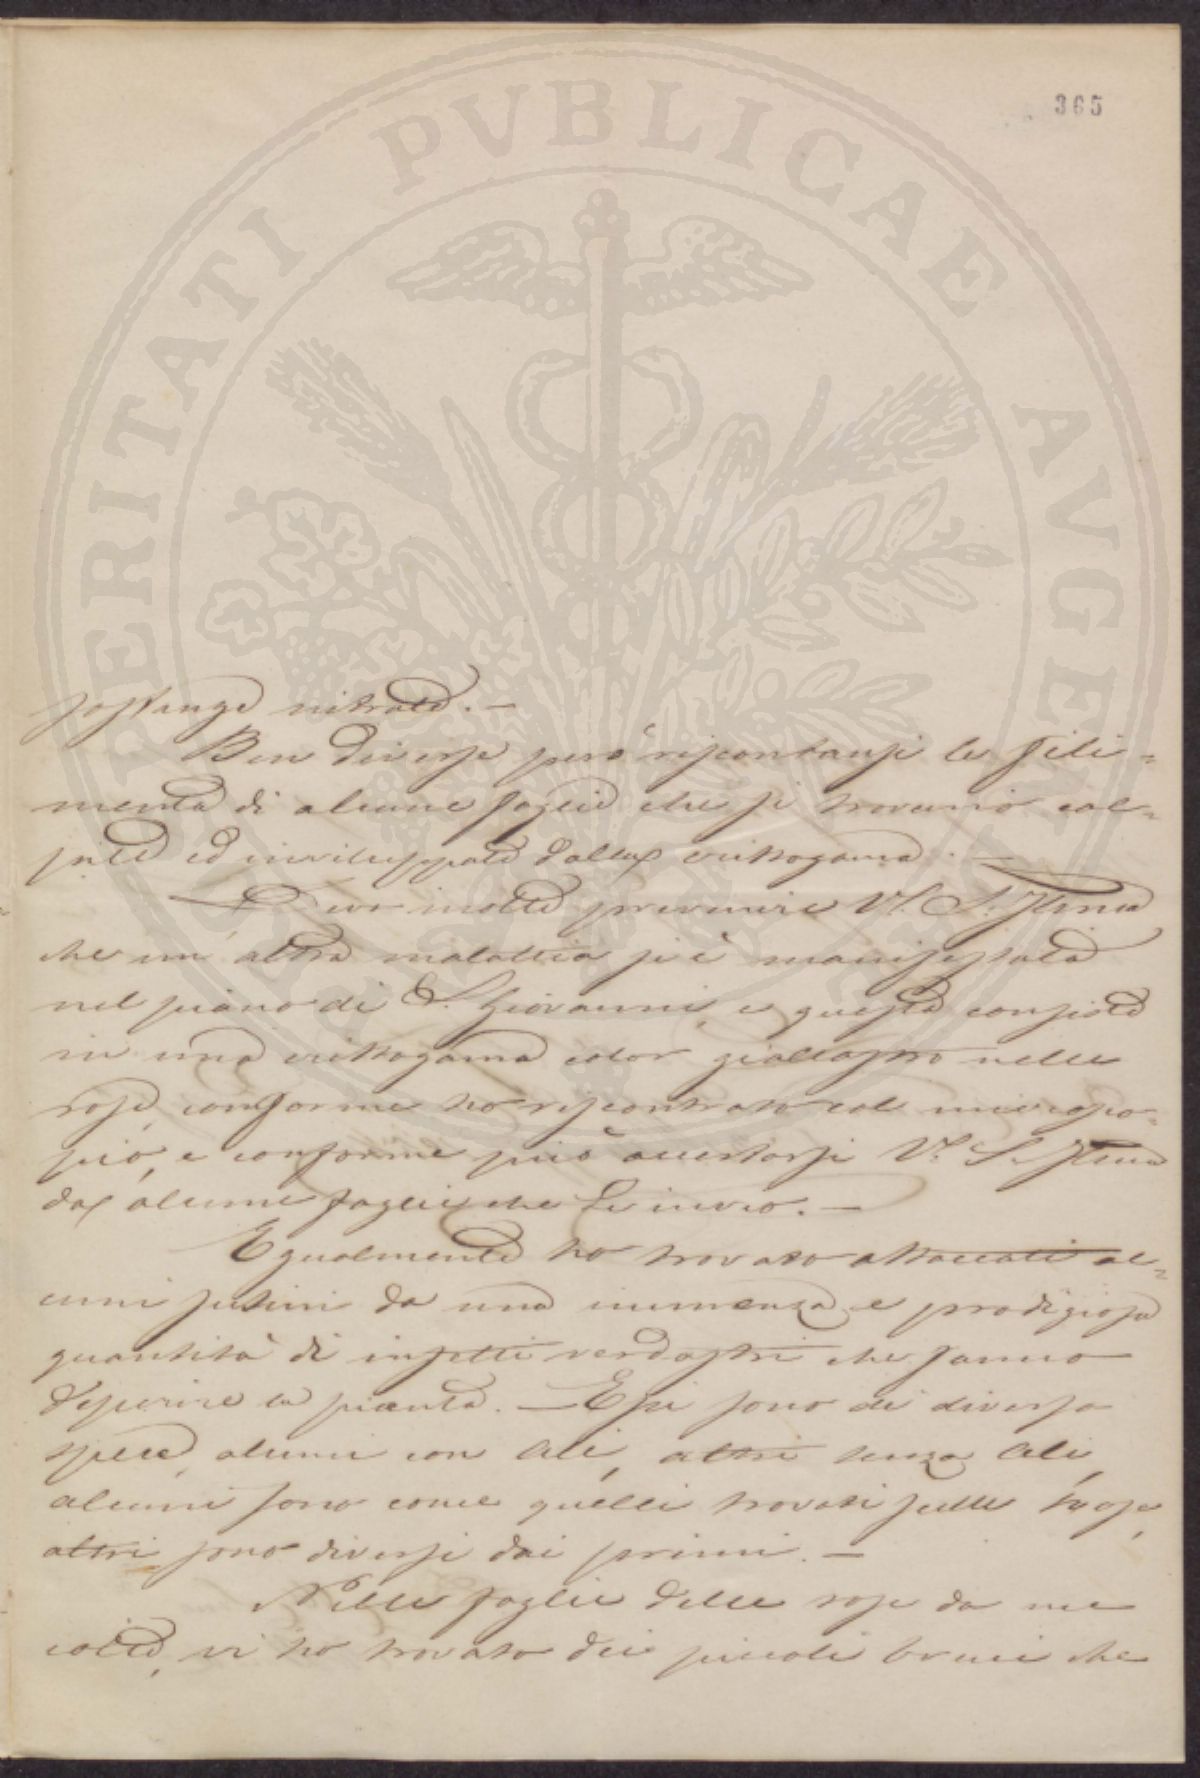 365
PROSPERITATI PVBLICAE AVGENDAE
sostanze nitrate. —
Ben diverse però riscontransi le fili=
menta di alcune foglie che si trovano col=
pite ed inviluppate dalla crittogama. —
Devo inoltre prevenire V.S. Illma
che un' altra malattia si è manifestata
nel piano di S. Giovanni, e questa consiste
in una crittogama color giallastro nelle
rose, conforme ho riscontrato col microsco=
pio, e conforme può accertarsi V.S. Illma
dalle alcune foglie che Le invio. —
Egualmente ho trovato attaccati al=
cuni susini da una immenza e prodigiosa
quantità di insetti verdastri che fanno
deperire la pianta. — Essi sono di diversa
specie, alcuni con ali, altri senza ali,
alcuni sono come quelli trovati sulle rose,
altri sono diversi dai primi. —
Nelle foglie delle rose da me
colte, vi ho trovato dei piccoli bruci che